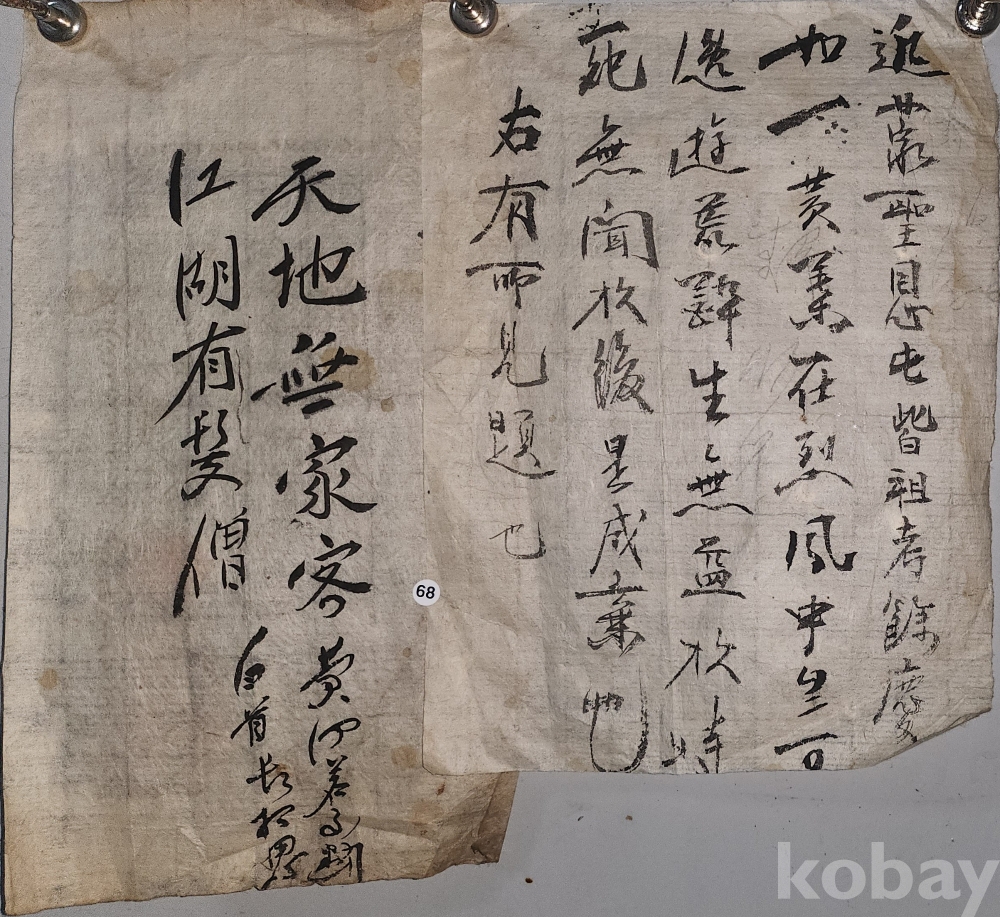 近蒙聖恩也皆祖考餘慶
如一黃葉在烈風中豈可
逸遊荒醉生無益於時
死無聞於後是咸棄也
右有所見題也
天地無家客
江湖有髮僧
黃河若可
白首長相思
68
kobay